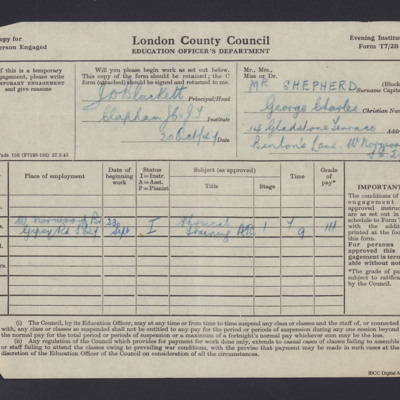 opy for
erson Engaged
London County Council
EDUCATION OFFICER'S DEPARTMENT
Evening Institut
Form T7/2B
If this is a temporary
ngagement, please write
EMPORARY ENGAGEMENT
and give reasons
Will you please begin work as set out below.
This copy of the form should be retained; the C
form (attached) should be signed and returned to me.
J D Blackett
Principal/Head
Clapham
Institute
Date
Mr., Mrs.,
Miss or Dr.
MR SHEPHERD
(Block
Surname Capital
George Charles
Christian Nam
14 Gladstone Terrace
Addres
Place of employment
Date of
beginning
work
Status
I = Instr.
A = Asst.
P = Pianist
Subject (as approved)
Title
Stage
Time
Grade
of
pay*
W. Norwood
Gipsy Rd
Sept
I
Physical
Training
1
7
9
III
IMPORTANT
The conditions of
engagement
approved
instructi
are as set out in
schedule to Form
with the addit
printed at the foo
this form.
For persons
approved this
gagement is term
able without
*The grade of pa
subject to ratific
by the Council.
(i) The Council, by its Education Officer, may at any time or from time to time suspend any class or classes and the staff of, or connected
with, any class or classes so suspended shall not be entitled to pay for the period or periods of suspension during any one session beyond
the normal pay for the total period or periods of suspension or a maximum of a fortnight's normal pay whichever sum may be the less.
(ii) Any regulation of the Council which provides for payment for work done only, extends to casual cases of classes failing to assemble
or staff failing to attend the classes owing to troubled conditions, with the proviso that payment may be made in such cases at the
discretion of the Education Officer of the Council on consideration of all the circumstances.